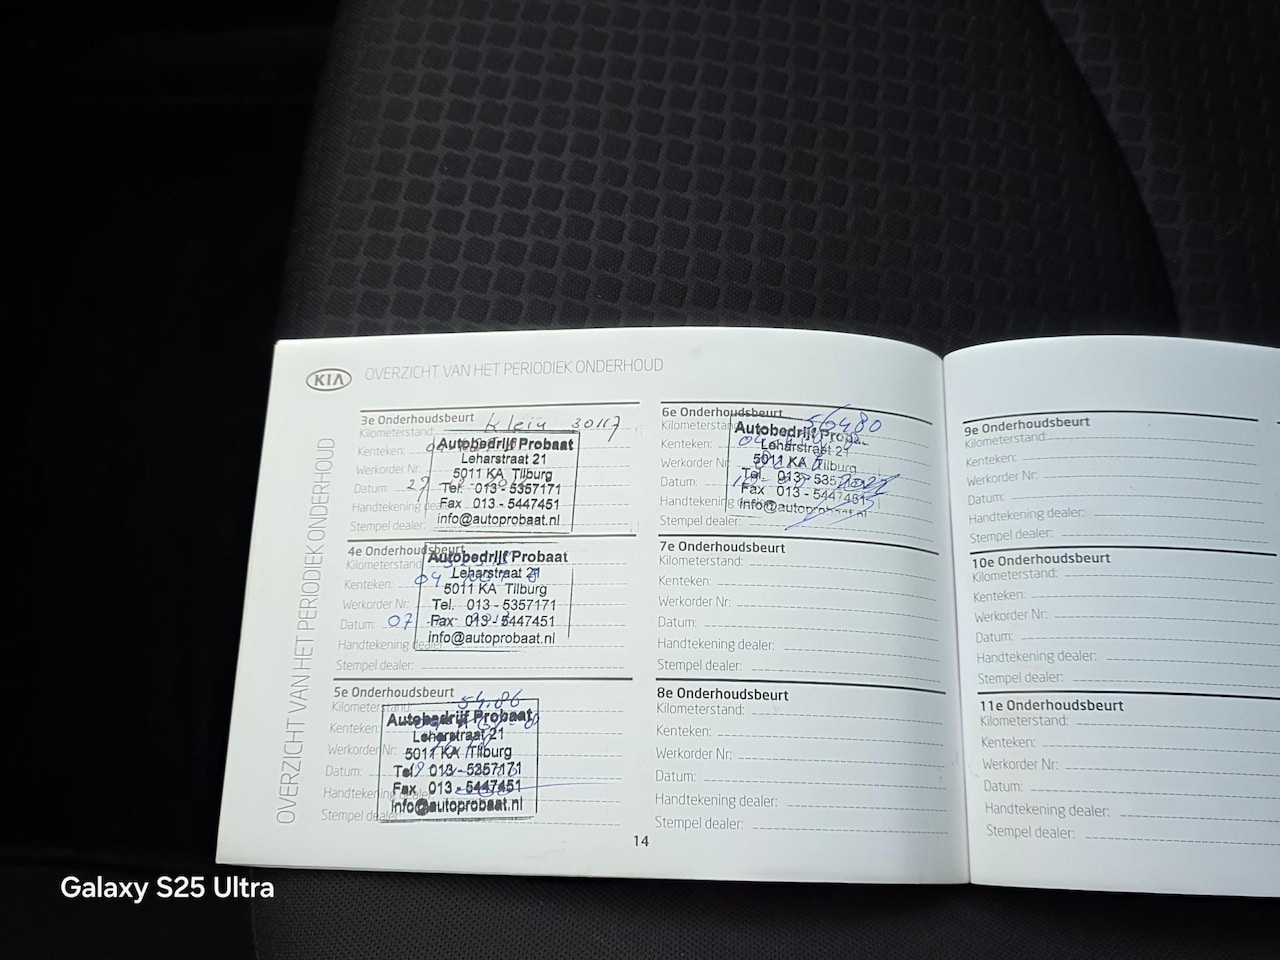 KIA OVERZICHT VAN HET PERIODIEK ONDERHOUD
OVERZICHT VAN HET PERIODIEK ONDERHOUD
3e Onderhoudsbeurt
Klein 30117
Kilometerstand:
Kenteken:
Werkorder Nr:
Datum: 27
Handtekening dealer:
Stempel dealer:
Autobedrijf Probaat
Leharstraat 21
5011 KA Tilburg
Tel. 013 - 5357171
Fax 013 - 5447451
info@autoprobaat.nl
4e Onderhoudsbeurt
Kilometerstand:
Kenteken: 04
Werkorder Nr:
Datum: 07
Handtekening dealer:
Stempel dealer:
Autobedrijf Probaat
Leharstraat 21
5011 KA Tilburg
Tel. 013 - 5357171
Fax 013 - 5447451
info@autoprobaat.nl
5e Onderhoudsbeurt
Kilometerstand:
Kenteken:
Werkorder Nr:
Datum:
Handtekening dealer:
Stempel dealer:
Autobedrijf Probaat
Leharstraat 21
5011 KA Tilburg
Tel. 013 - 5357171
Fax 013 - 5447451
info@autoprobaat.nl
6e Onderhoudsbeurt
Kilometerstand: 56480
Kenteken:
Werkorder Nr:
Datum:
Handtekening dealer:
Stempel dealer:
Autobedrijf Probaat
Leharstraat 21
5011 KA Tilburg
Tel. 013 - 5357171
Fax 013 - 5447451
info@autoprobaat.nl
7e Onderhoudsbeurt
Kilometerstand:
Kenteken:
Werkorder Nr:
Datum:
Handtekening dealer:
Stempel dealer:
8e Onderhoudsbeurt
Kilometerstand:
Kenteken:
Werkorder Nr:
Datum:
Handtekening dealer:
Stempel dealer:
14
9e Onderhoudsbeurt
Kilometerstand:
Kenteken:
Werkorder Nr:
Datum:
Handtekening dealer:
Stempel dealer:
10e Onderhoudsbeurt
Kilometerstand:
Kenteken:
Werkorder Nr:
Datum:
Handtekening dealer:
Stempel dealer:
11e Onderhoudsbeurt
Kilometerstand:
Kenteken:
Werkorder Nr:
Datum:
Handtekening dealer:
Stempel dealer:
Galaxy S25 Ultra